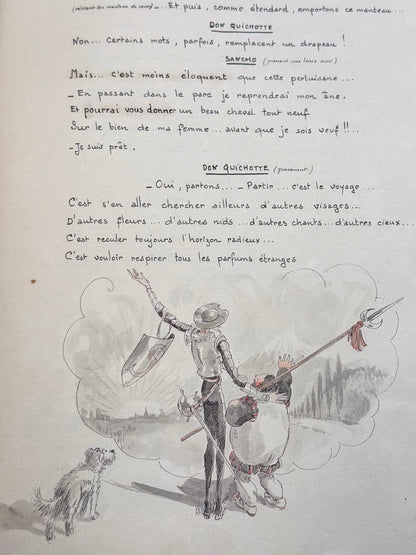 (retirant son manteau de cour) _... Et puis, comme étendard, emportons ce manteau...
DON QUICHOTTE
Non... Certains mots, parfois, remplacent un drapeau !
SANCHO (prenant une lance aussi)
Mais... c'est moins éloquent que cette pertuisane...
_ En passant dans le parc je reprendrai mon âne.
Et pourrai vous donner un beau cheval tout neuf
Sur le bien de ma femme... avant que je sois veuf !!..
- Je suis prêt.
DON QUICHOTTE (gravement.)
_ Oui, partons... _ Partir... c'est le voyage...
C'est s'en aller chercher ailleurs d'autres visages...
D'autres fleurs... d'autres nids... d'autres chants... d'autres cieux...
C'est reculer toujours l'horizon radieux...
C'est vouloir respirer tous les parfums étranges